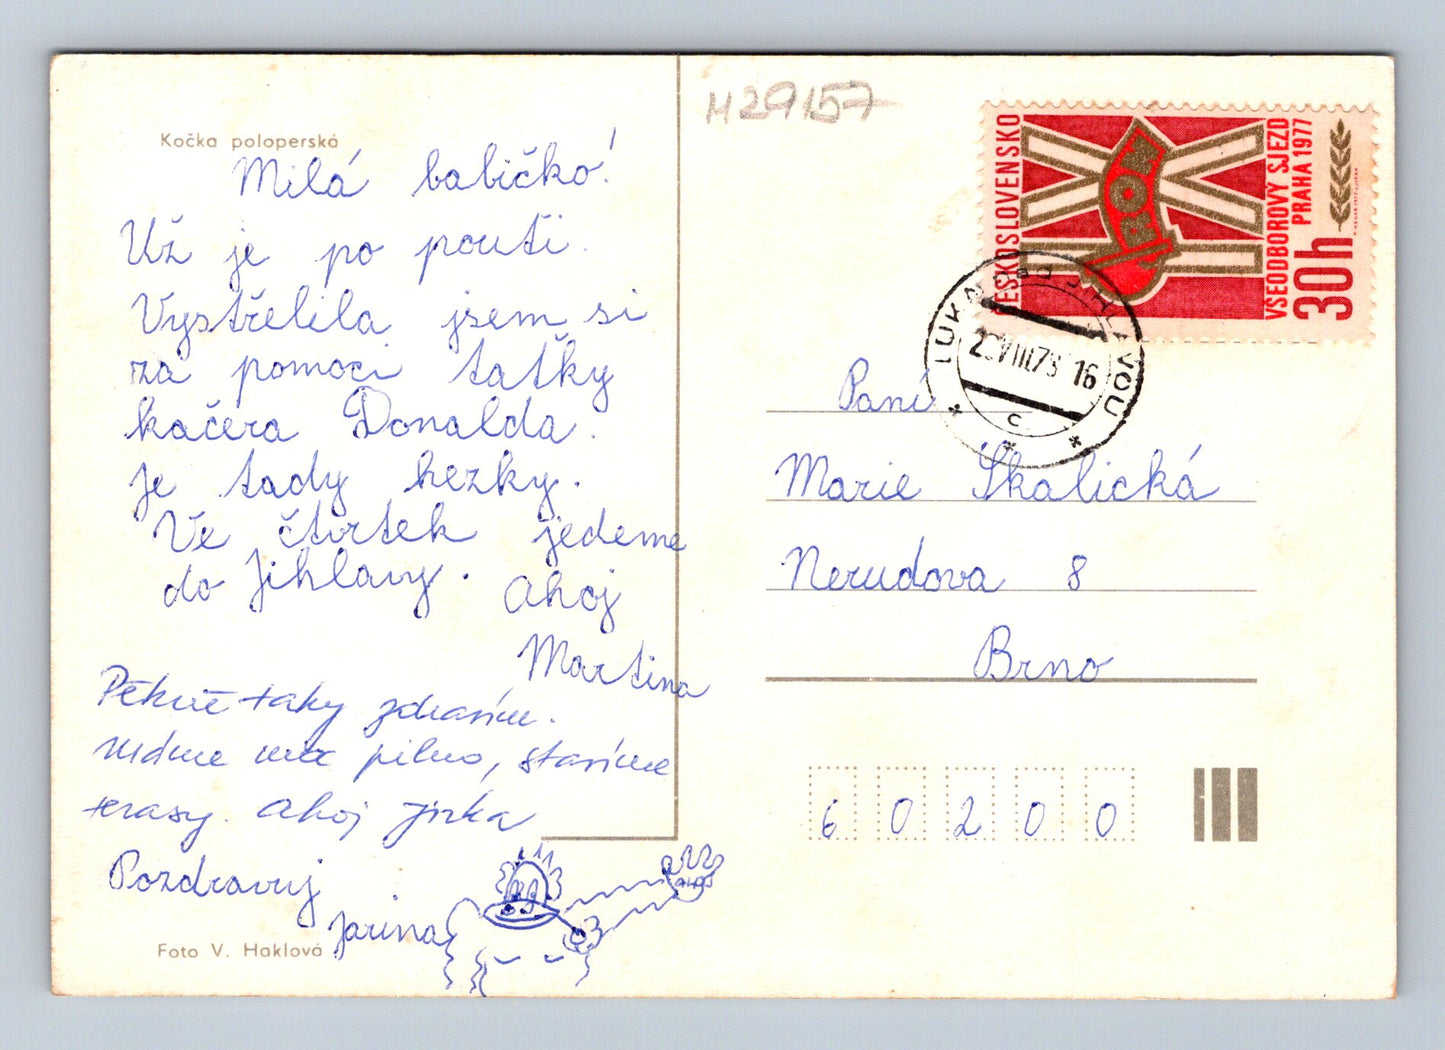 Kočka poloperská
Milá babičko!
Už je po pouti.
Vystřelila jsem si
za pomoci taťky
kačera Donalda.
je tady hezky.
Ve čtvrtek jedeme
do Jihlavy. Ahoj
Martina
Pěkně taky zdravím.
Máme moc pilno, stavíme
terasy. Ahoj Jirka
Pozdravuj
Jarina
Foto V. Haklová
M29157
ČESKOSLOVENSKO
ROH
VŠEODBOROVÝ SJEZD
PRAHA 1977
30h
LUKA NAD JIHLAVOU
VIII.78 16
c
Paní
Marie Skalická
Nerudova 8
Brno
60200